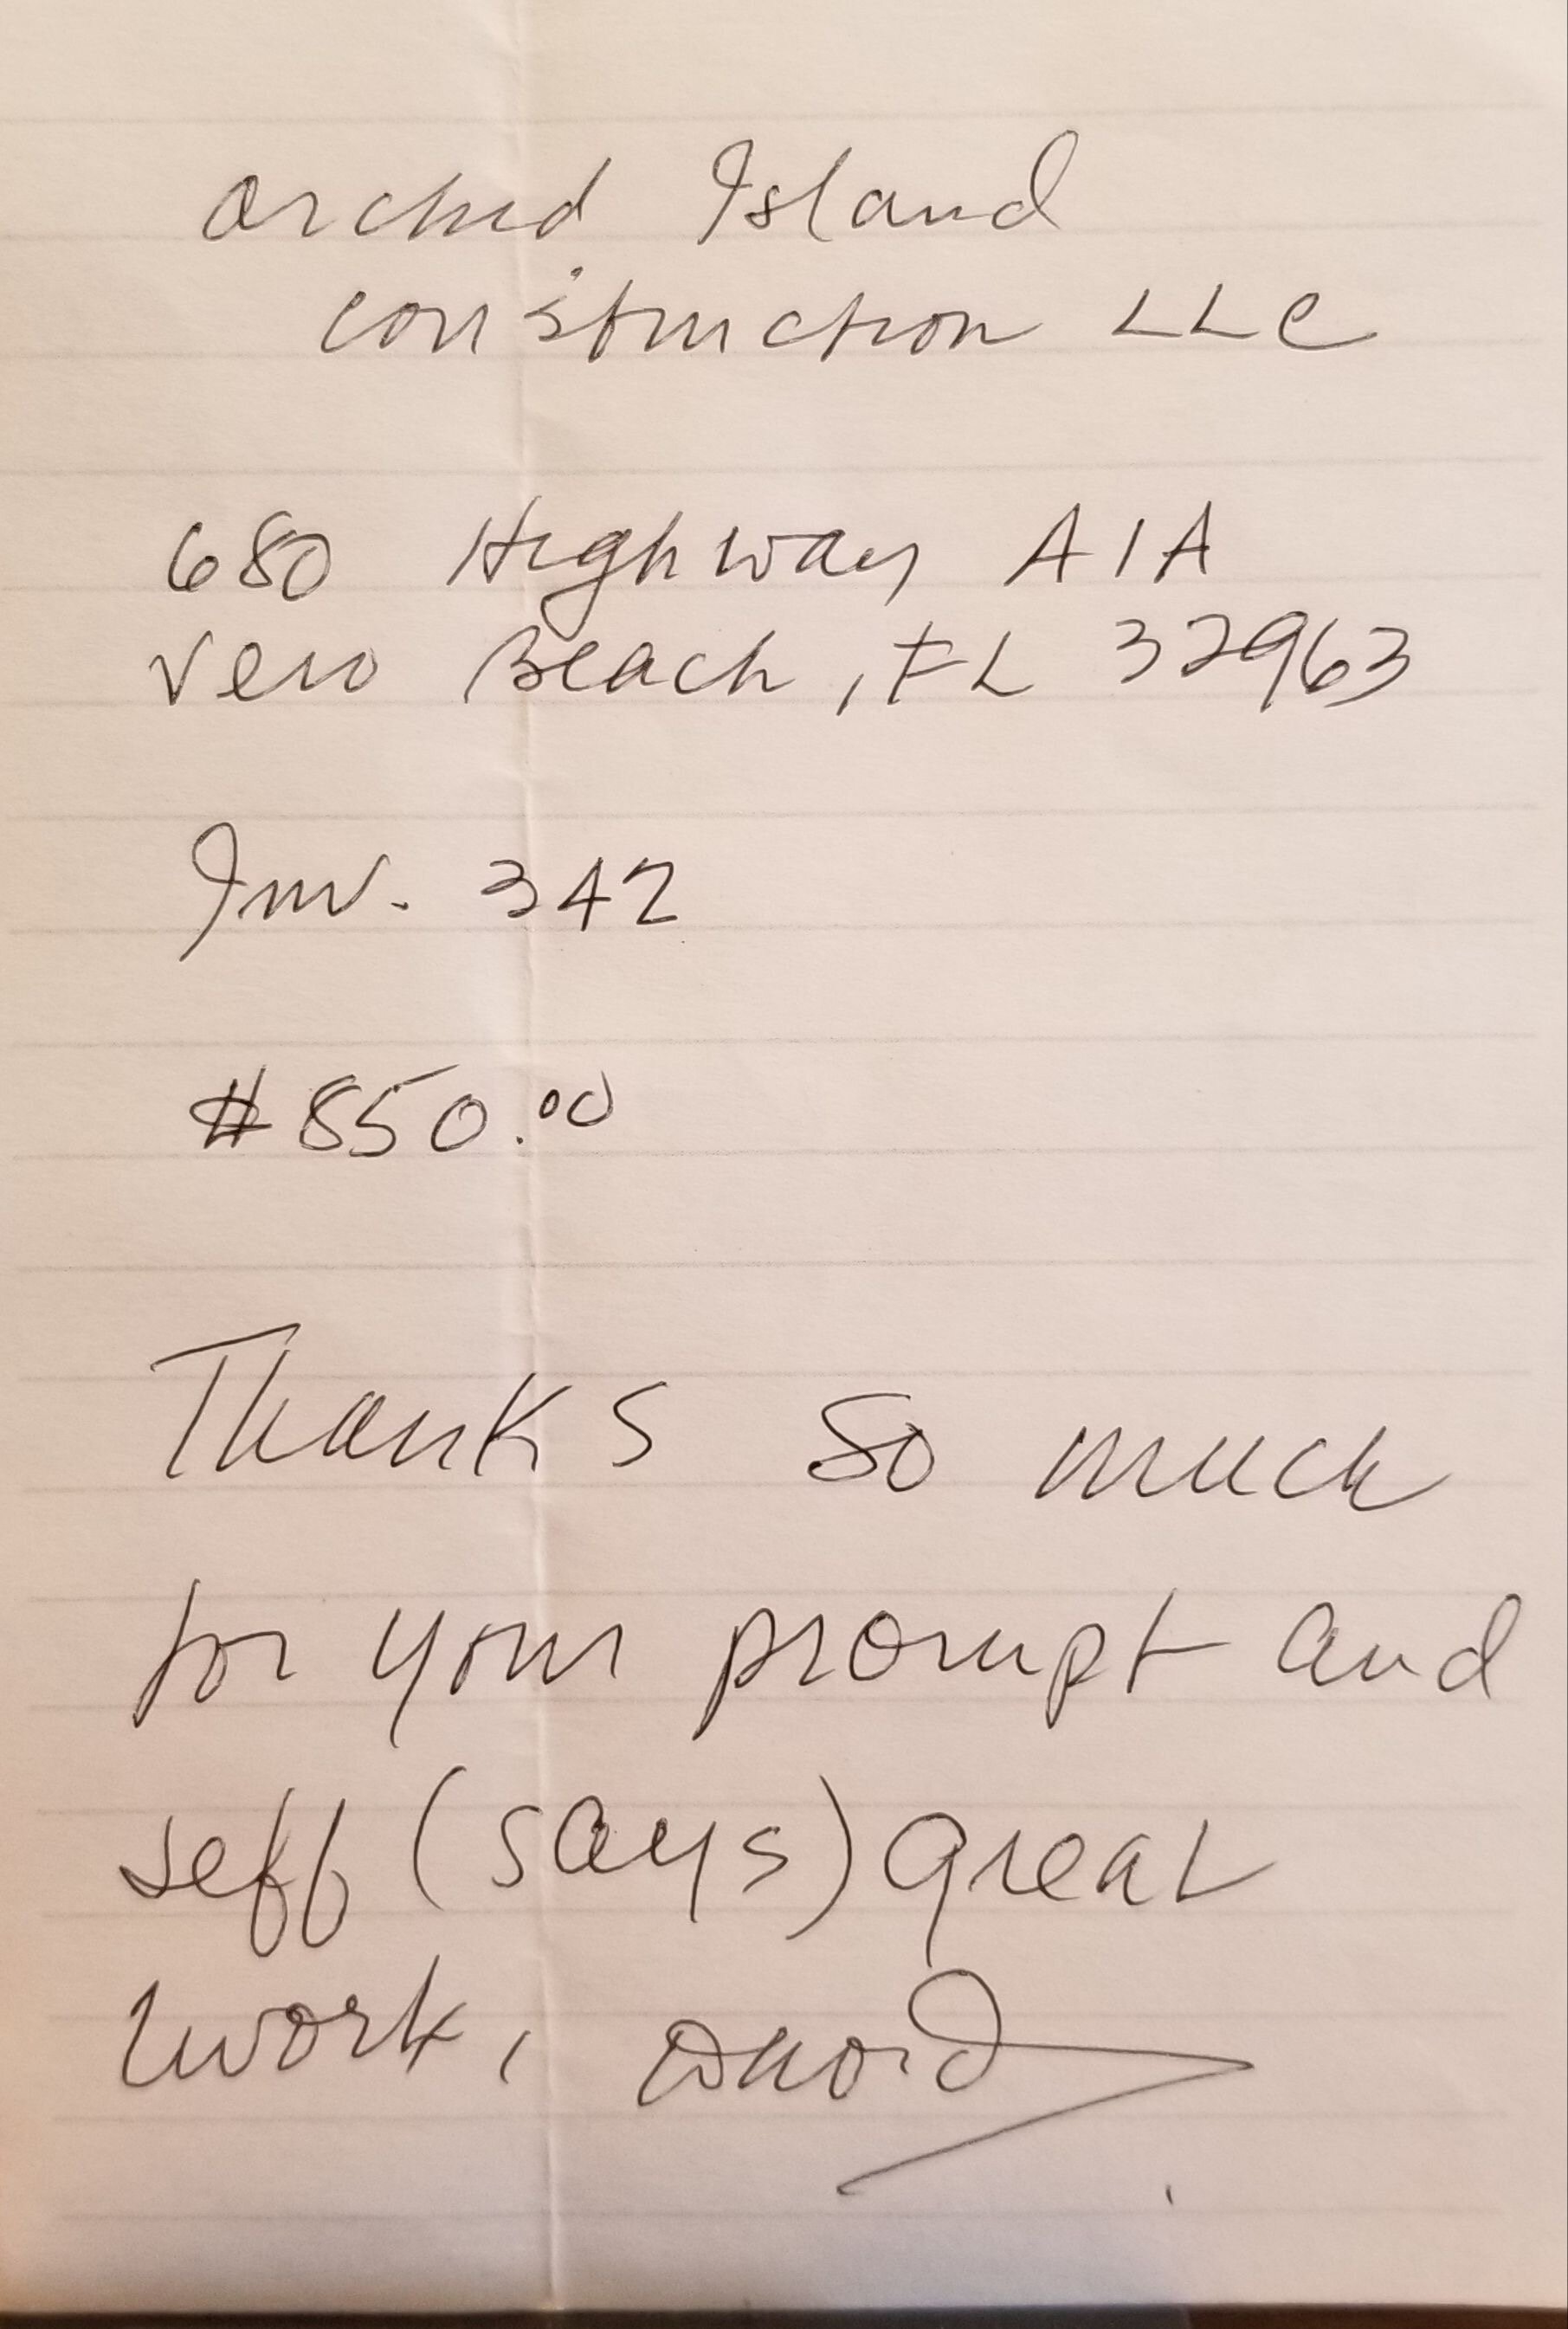 Orchid Island
construction LLC
680 Highway A1A
Vero Beach, FL 32963
Inv. 342
$850.00
Thanks so much
for your prompt and
Jeff (says) great
work, David